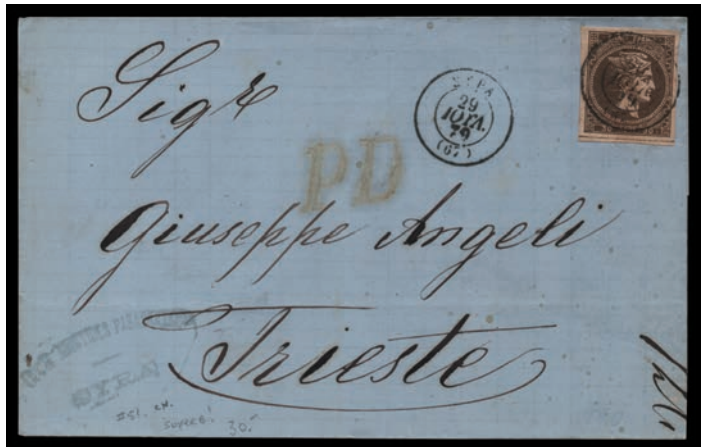 Sigr
ΣΥΡΑ
29
ΙΟΥΛ.
79
(67)
PD
Giuseppe Angeli
Trieste
SYRA
superb!
30.-